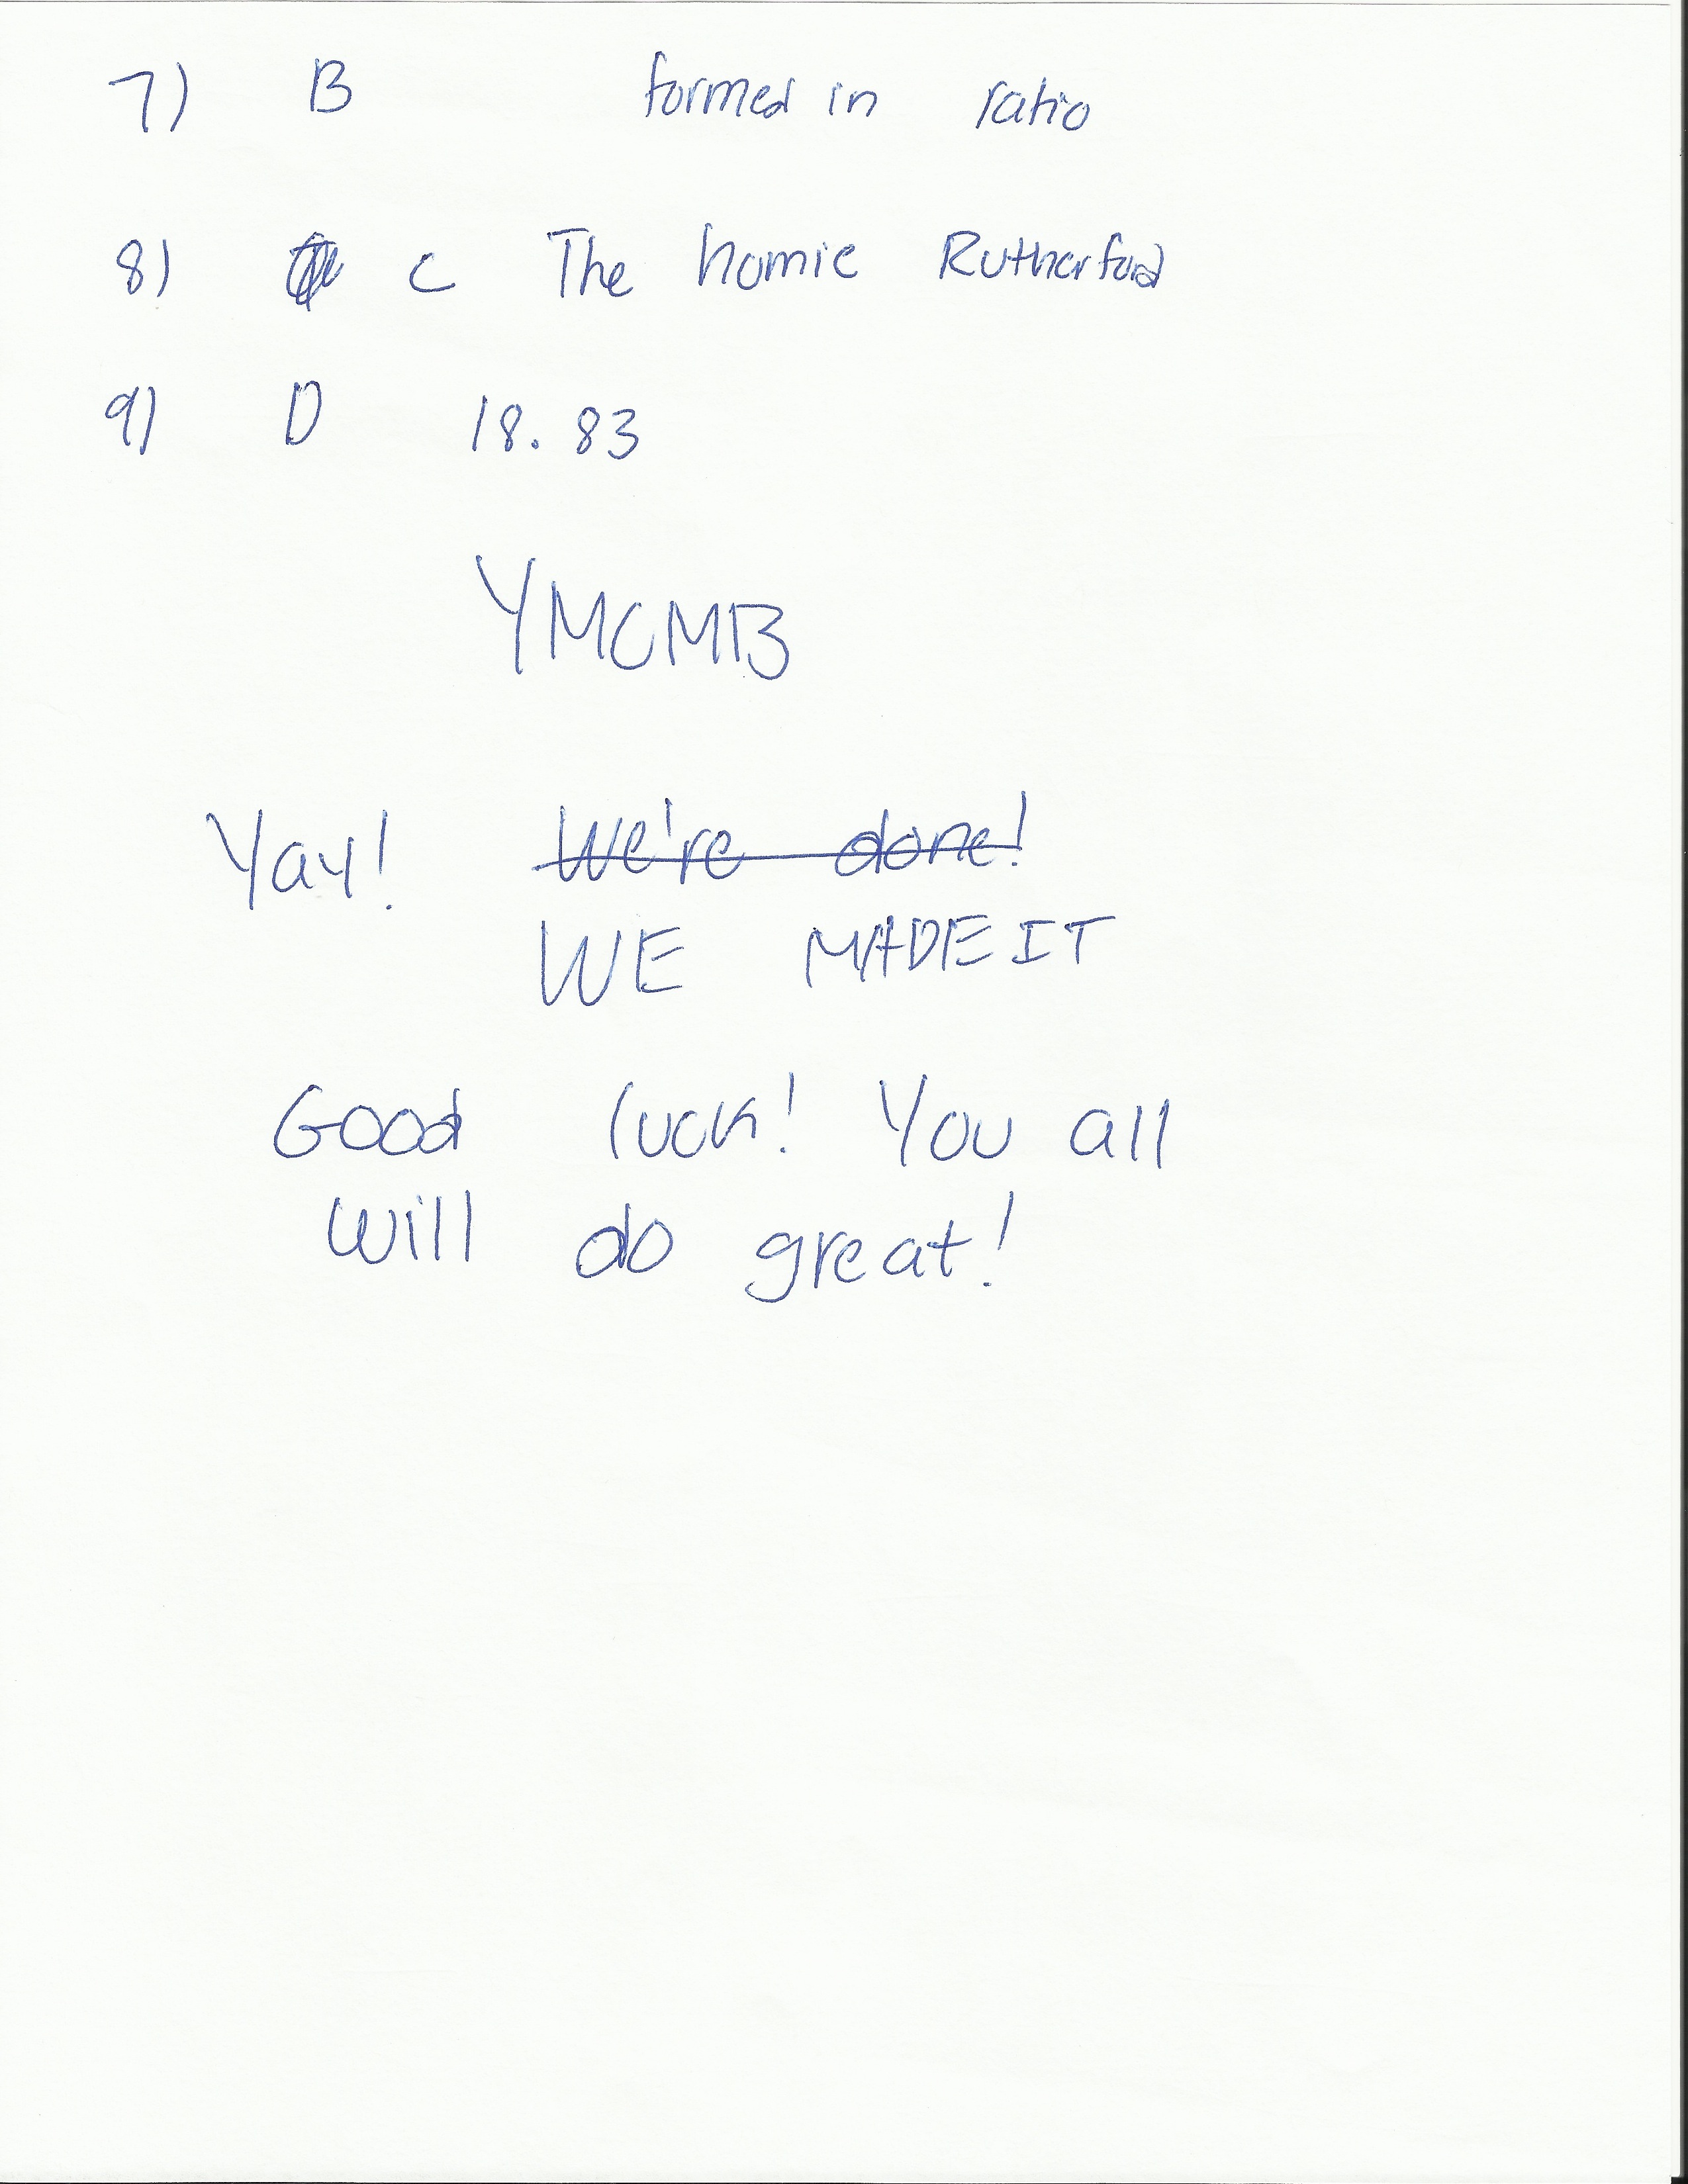 7) B formed in ratio
8) C The homie Rutherford
9) D 18.83
YMCMB
Yay! We're done!
WE MADE IT
Good luck! You all
will do great!